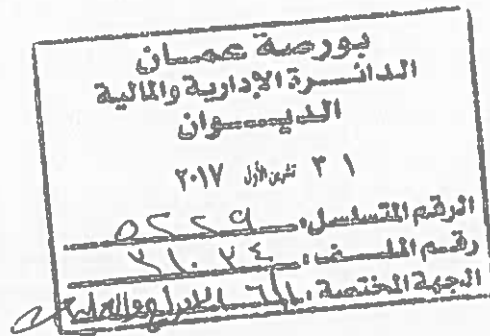 بورصة عمان
الدائرة الإدارية والمالية
الديوان
٣١ تشرين الأول ٢٠١٧
الرقم المتسلسل: ٥٢٢٩
رقم الملف:
الجهة المختصة: